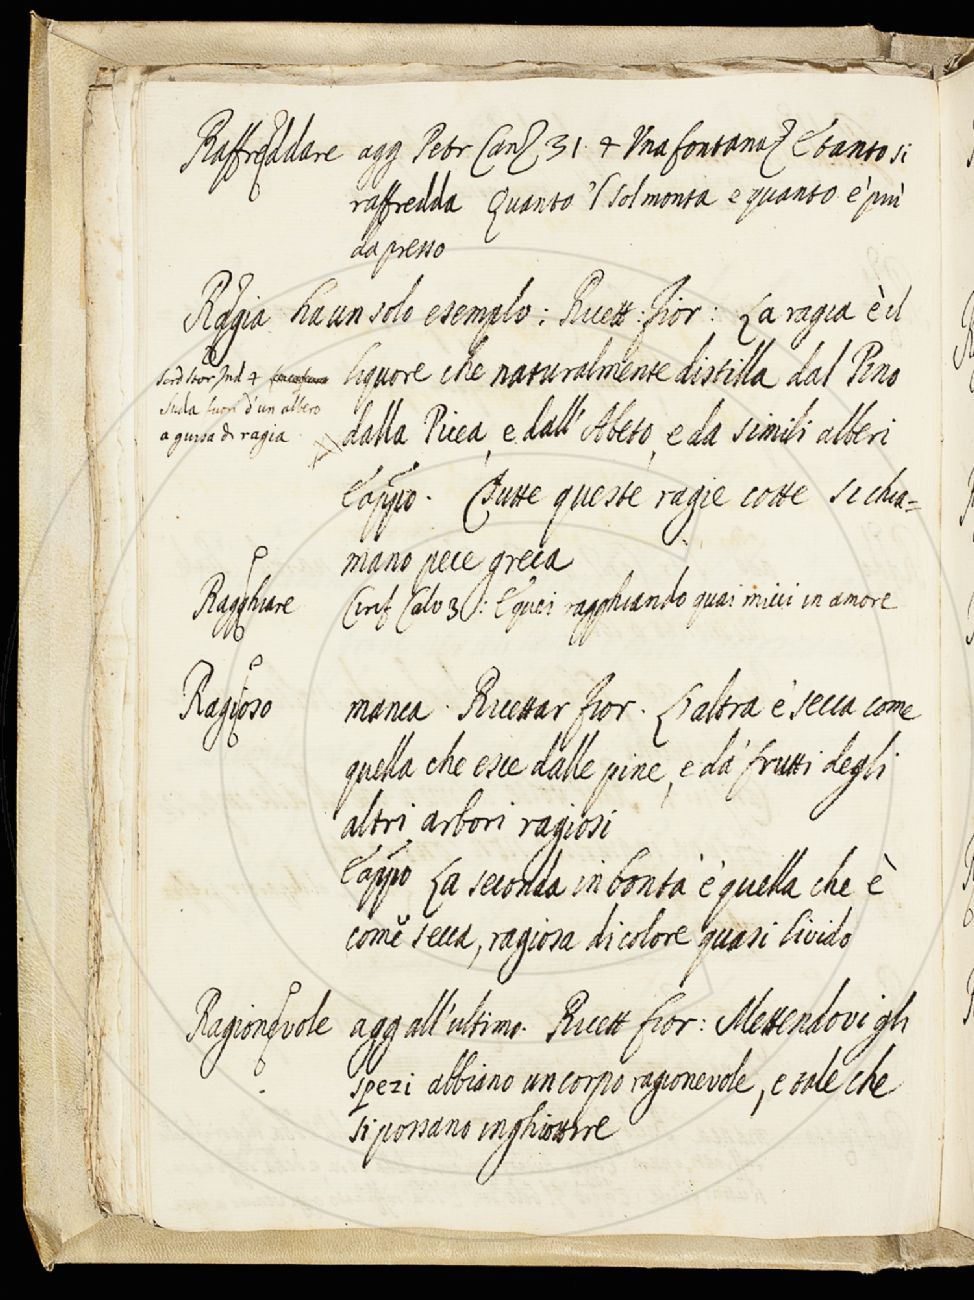 Raffreddare agg Petr Canz 31. 4 Una fontana E tanto si
raffredda Quanto 'l sol monta e quanto è più
da presso
Ragia ha un solo esemplo: Ricett: fior: La ragia è il
liquore che naturalmente distilla dal Pino
dalla Picea, e dall' Abeto, e da simili alberi
E appo. Tutte queste ragie cotte si chia=
mano pece greca
Serd Stor Ind 4
Suda fuori d'un albero
a guisa di ragia
Ragghiare Cirif Calv 3: E quei ragghiando quai mici in amore
Ragioso manca. Ricettar fior. L'altra è secca come
quella che esce dalle pine, e da' frutti degli
altri arbori ragiosi
E appo La seconda in bontà è quella che è
come secca, ragiosa di colore quasi livido
Ragionevole agg all'ultimo. Ricett fior: Mettendovi gli
spezi abbiano un corpo ragionevole, e tale che
si possano inghiottire